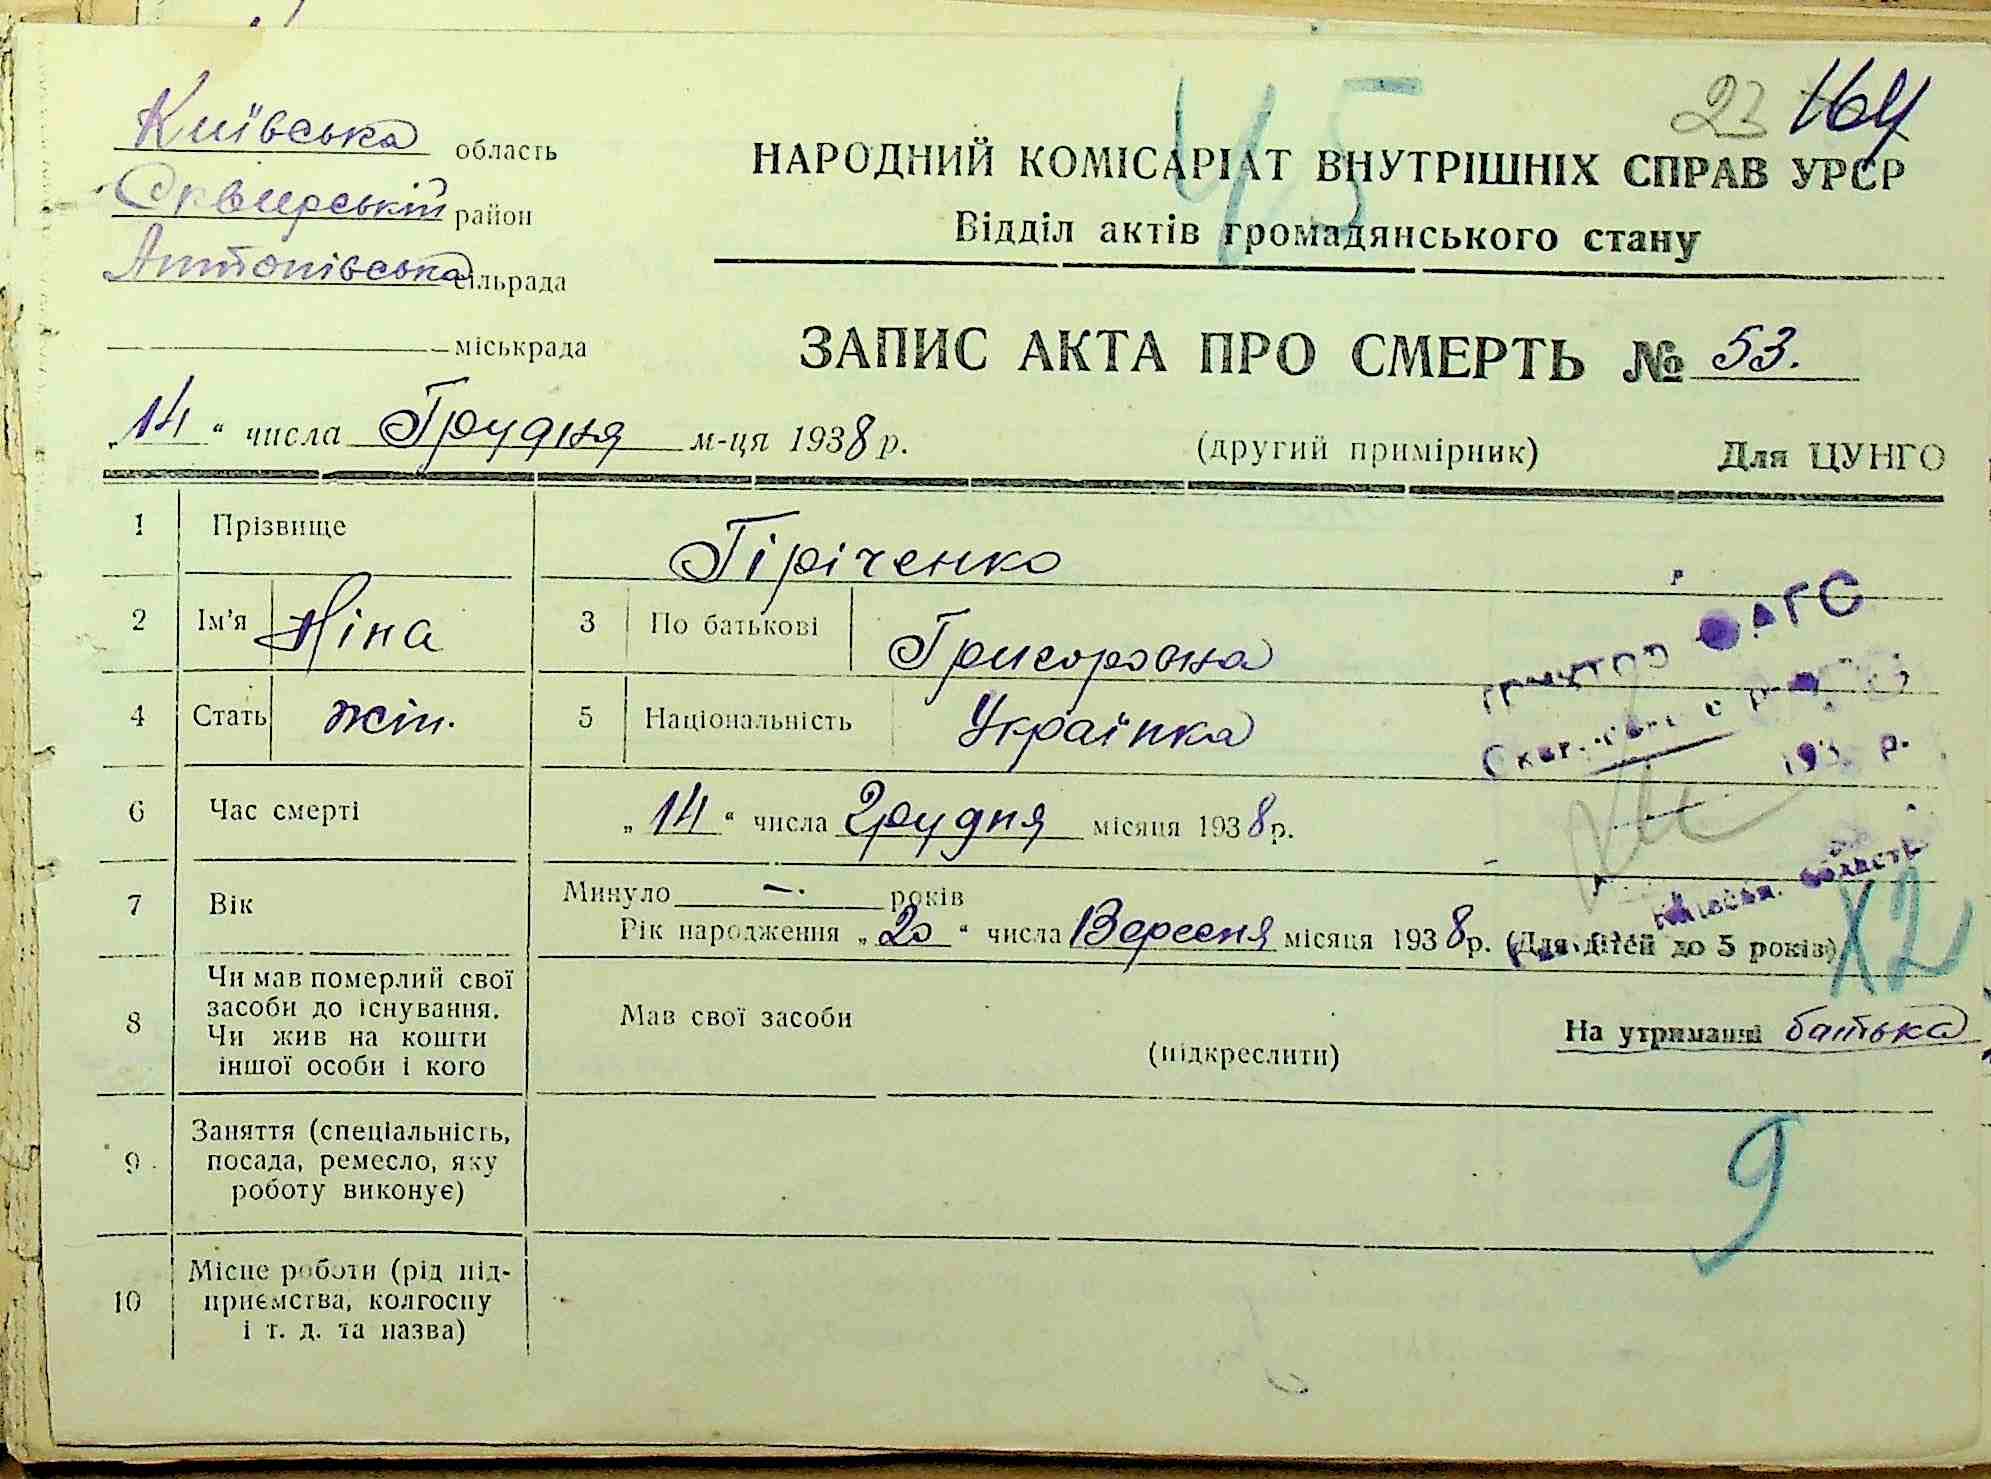 23 164
45
Київська область
Сквирський район
Антонівська сільрада
міськрада
НАРОДНИЙ КОМІСАРІАТ ВНУТРІШНІХ СПРАВ УРСР
Відділ актів громадянського стану
ЗАПИС АКТА ПРО СМЕРТЬ № 53.
„14“ числа Грудня м-ця 1938 р.
(другий примірник) Для ЦУНГО
1 Прізвище Гіріченко
2 Ім'я Ніна 3 По батькові Григоровна
4 Стать жін. 5 Національність Українка
6 Час смерті „14“ числа грудня місяця 1938 р.
7 Вік Минуло —. років
Рік народження „20“ числа Вересня місяця 1938 р. (Для дітей до 5 років)
Х2
8 Чи мав померлий свої
засоби до існування.
Чи жив на кошти
іншої особи і кого
Мав свої засоби
(підкреслити)
На утриманні батька
9 Заняття (спеціальність,
посада, ремесло, яку
роботу виконує)
9
10 Місце роботи (рід під-
приємства, колгоспу
і т. д. та назва)